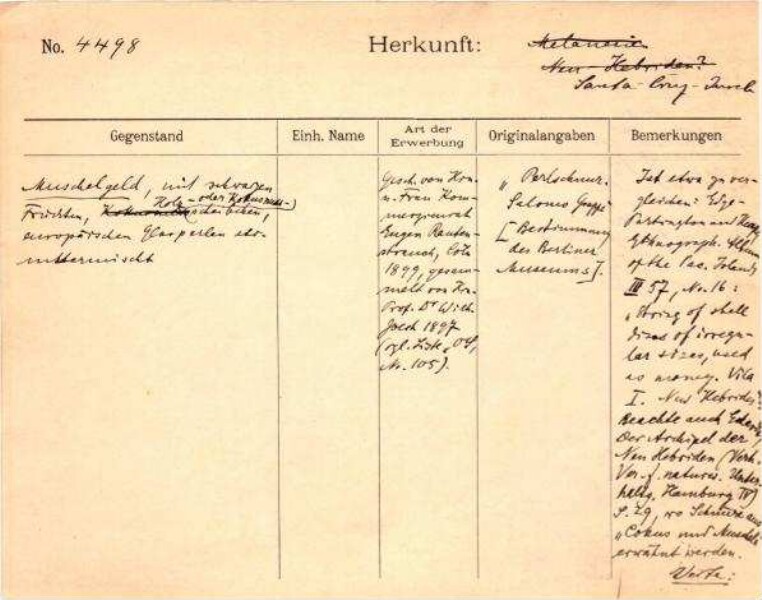 No. 4498
Herkunft:
Melanesien
Neu-Hebriden?
Santa Cruz-Inseln
Gegenstand
Einh. Name
Art der
Erwerbung
Originalangaben
Bemerkungen
Muschelgeld, mit schwarzen
Holz- oder Kokusnuss-
Früchten, scheiben,
europäischen Glasperlen etc.
untermischt
Gesch. von Hrn.
u. Frau Kom-
merzienrat
Eugen Rauten-
strauch, Cöln
1899, gesam-
melt von Hn.
Prof. Dr Wilh.
Joest 1897
(vgl. Liste
Nr. 105).
„Perlschnur.
Salomo Gruppe
[Bestimmung
des Berliner
Museums].
Ist etwa zu ver-
gleichen: Edge-
Partington and Heape
Ethnograph. Album
of the Pac. Islands
III 57, No. 16:
„String of shell
discs of irregu-
lar sizes, used
as money. Vila
I. New Hebrides
Beachte auch
Der Archipel der
Neu Hebriden (Verh.
Ver. f. naturw. Unter-
haltg. Hamburg IV)
S. 29, wo Schnüre aus
„Cokus und Muscheln
erwähnt werden.
Verte: